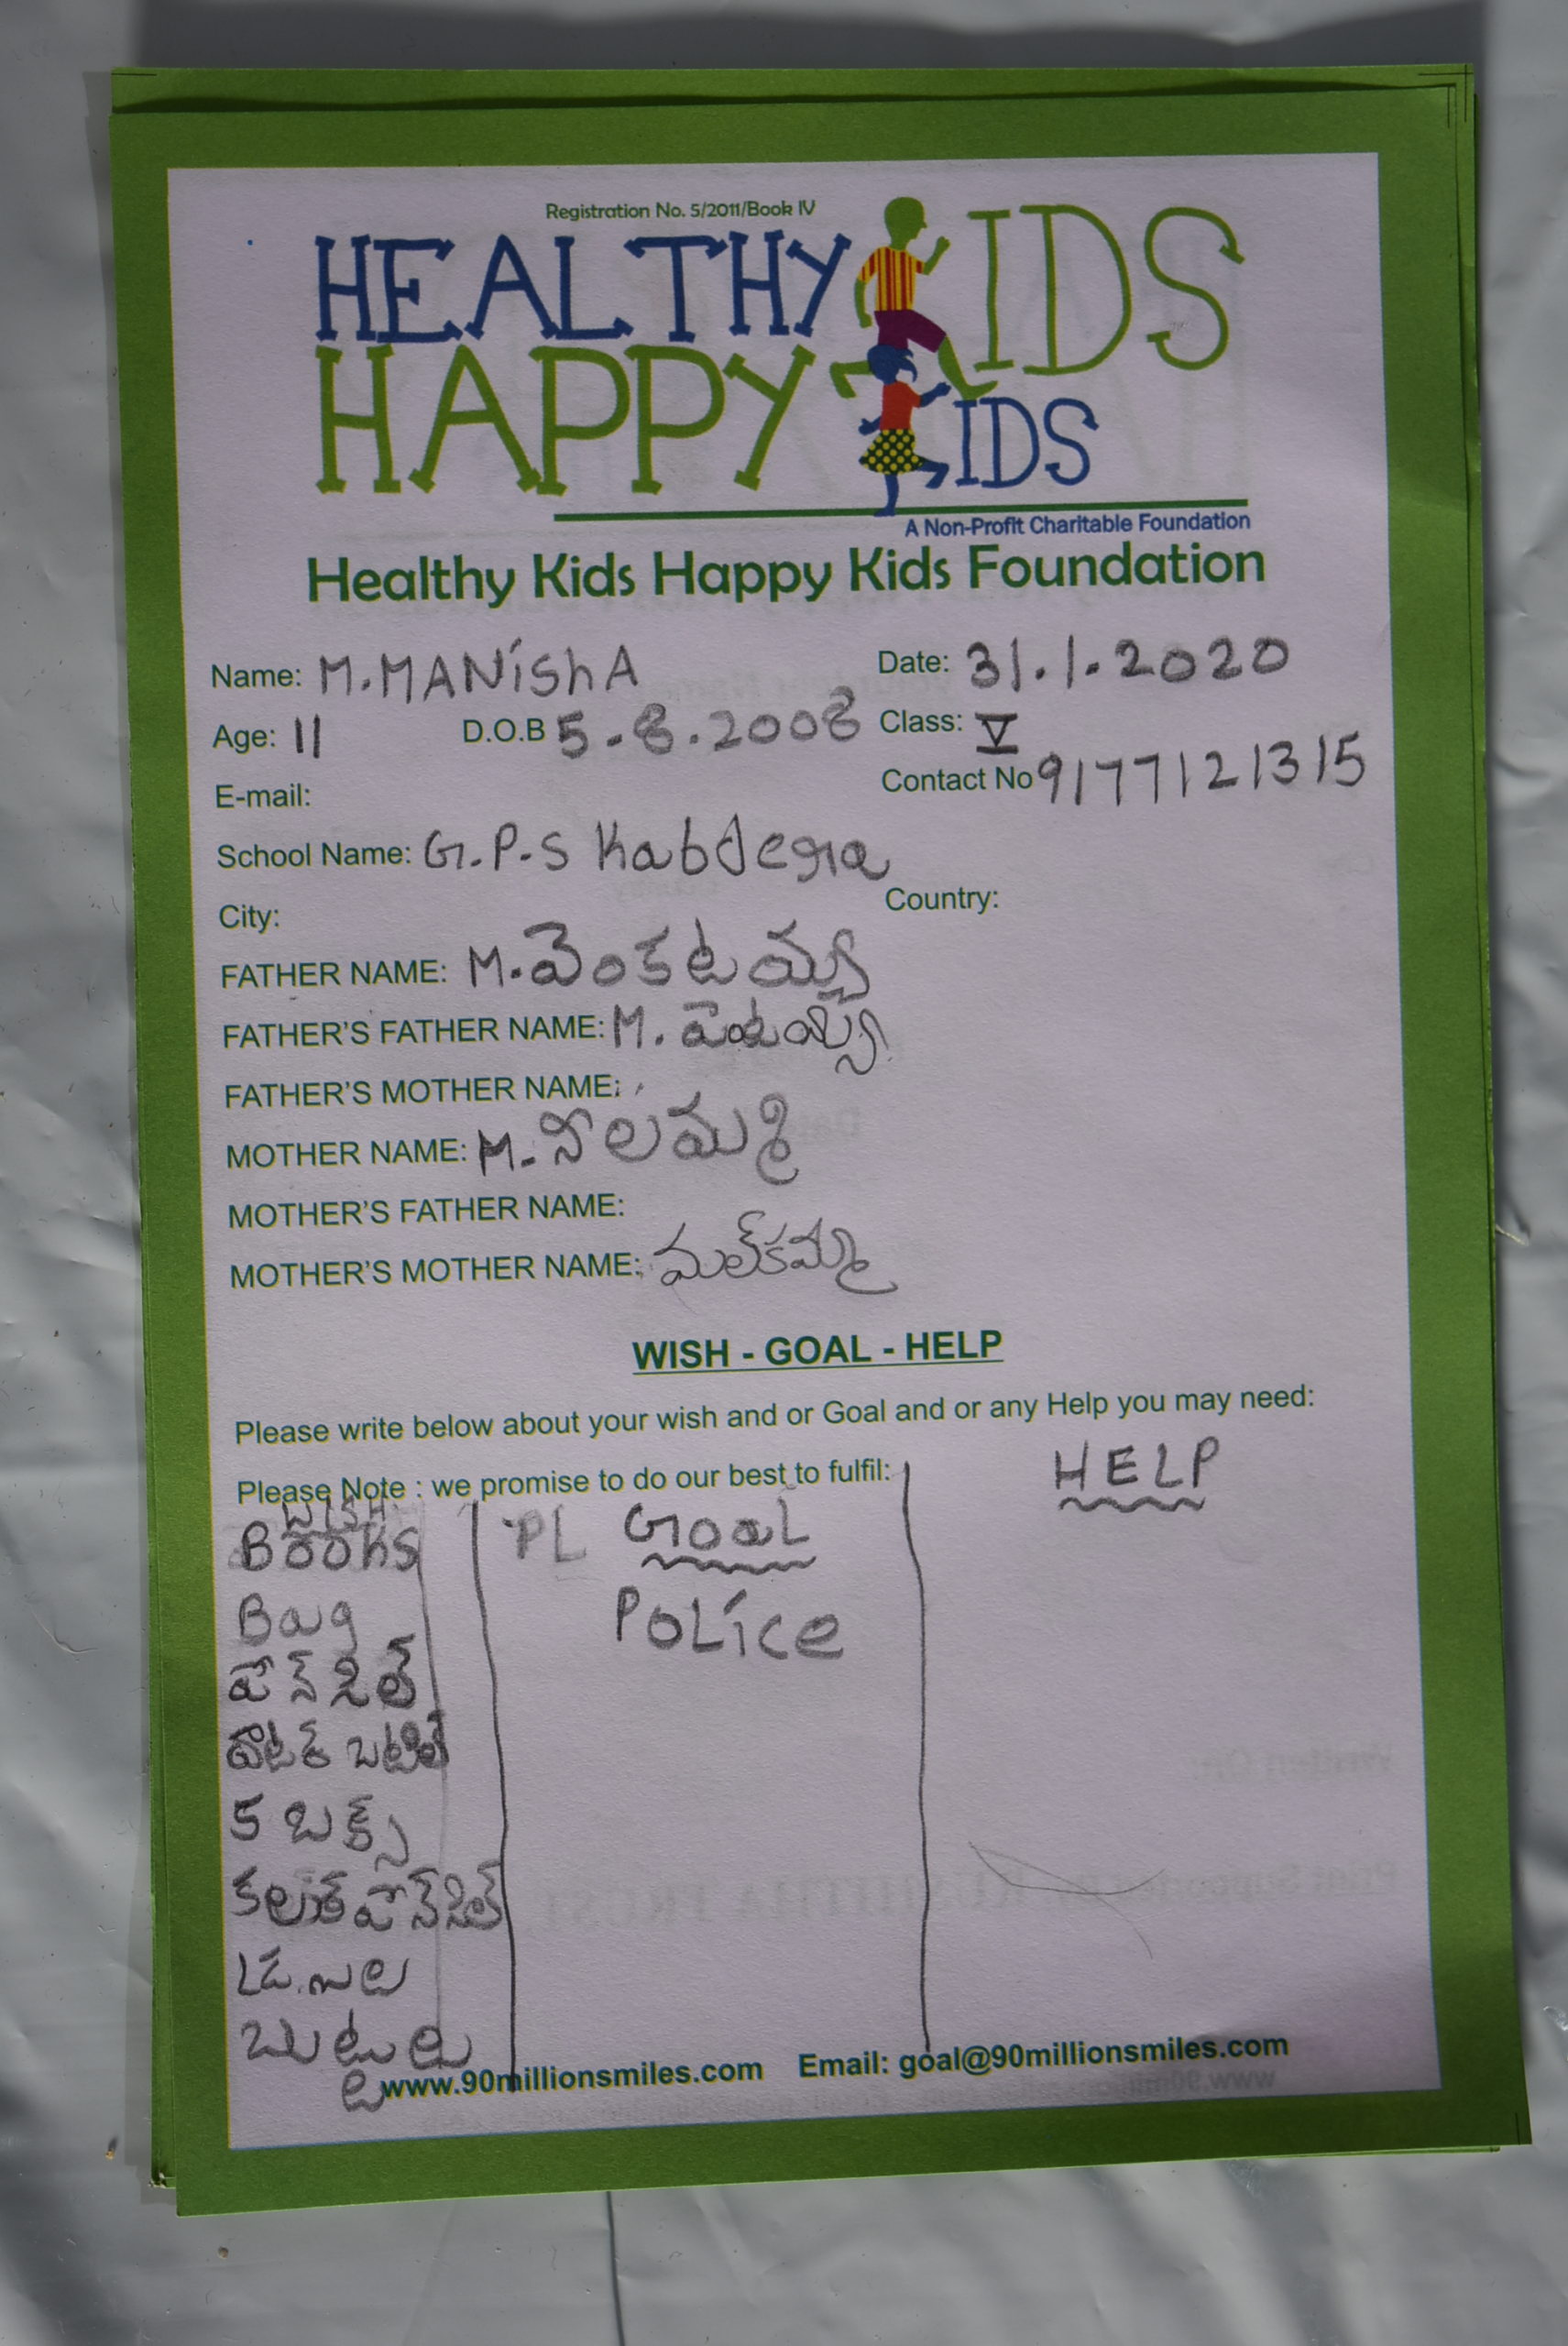 Registration No. 5/2011/Book IV
HEALTHY KIDS
HAPPY KIDS
A Non-Profit Charitable Foundation
Healthy Kids Happy Kids Foundation
Name: M.MANishA Date: 31.1.2020
Age: 11 D.O.B 5-8.2008 Class: V
E-mail: Contact No 9177121315
School Name: G.P.S Kabdegra
City: Country:
FATHER NAME: M.వెంకటయ్య
FATHER'S FATHER NAME: M.
FATHER'S MOTHER NAME:
MOTHER NAME: M. నీలమ్మ
MOTHER'S FATHER NAME:
MOTHER'S MOTHER NAME: మల్కమ్మ
WISH - GOAL - HELP
Please write below about your wish and or Goal and or any Help you may need:
Please Note : we promise to do our best to fulfil:
WISH PL GoaL HELP
Books
Bag POLice
పెన్సిల్
వాటర్ బటిల్
5 బుక్స్
కలర్ పెన్సిల్
www.90millionsmiles.com Email: goal@90millionsmiles.com